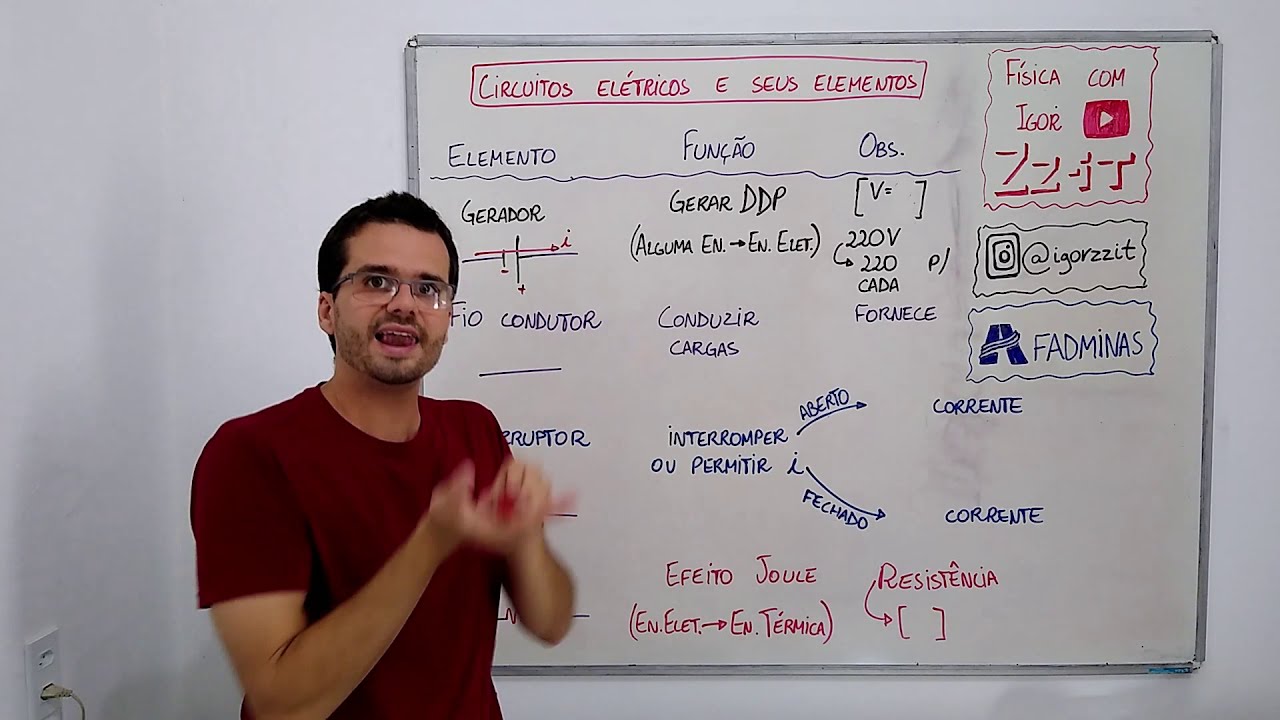 CIRCUITOS ELÉTRICOS E SEUS ELEMENTOS
ELEMENTO FUNÇÃO OBS.
GERADOR GERAR DDP [V= ]
i
(ALGUMA EN.→EN. ELET.) 220V
- +
220 P/
CADA
FIO CONDUTOR CONDUZIR FORNECE
CARGAS
RRUPTOR INTERROMPER ABERTO CORRENTE
OU PERMITIR i FECHADO CORRENTE
EFEITO JOULE RESISTÊNCIA
(EN.ELET.→EN. TÉRMICA) [ ]
FÍSICA COM
IGOR
ZZ-iT
@igorzzit
FADMINAS